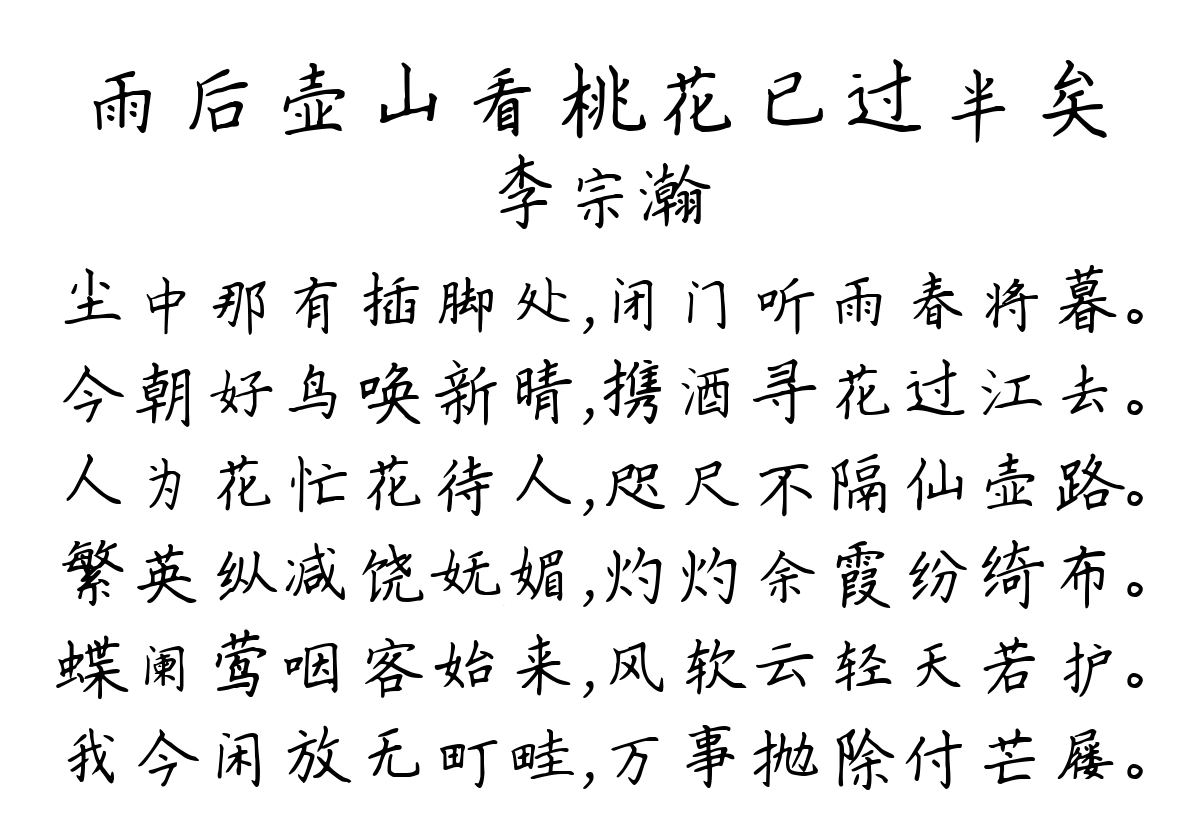 雨后壶山看桃花已过半矣
李宗瀚
尘中那有插脚处,闭门听雨春将暮。
今朝好鸟唤新晴,携酒寻花过江去。
人为花忙花待人,咫尺不隔仙壶路。
繁英纵减饶妩媚,灼灼余霞纷绮布。
蝶阑莺咽客始来,风软云轻天若护。
我今闲放无町畦,万事抛除付芒屦。